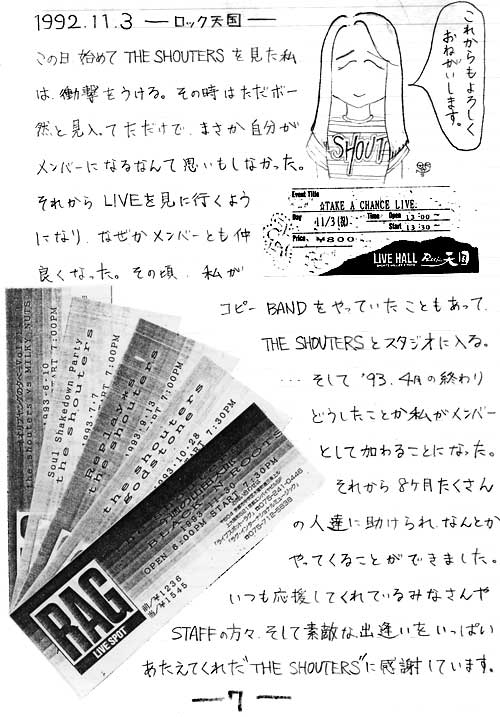 1992.11.3 — ロック天国 —
この日 始めて THE SHOUTERS を見た私
は、衝撃をうける。その時はただボー
然と見入ってただけで、まさか自分が
メンバーになるなんて思いもしなかった。
それから LIVEを見に行くよう
になり、なぜかメンバーとも仲
良くなった。その頃、私が
コピー BAND をやっていたこともあって、
THE SHOUTERS とスタジオに入る。
… そして '93. 4月の終わり
どうしたことか私がメンバー
として加わることになった。
それから 8ヶ月たくさん
の人達に助けられ、なんとか
やってくることができました。
いつも応援してくれているみなさんや
STAFFの方々、そして素敵な出逢いをいっぱい
あたえてくれた"THE SHOUTERS"に感謝しています。
これからもよろしく
おねがいします。
SHOUT
Event Title
☆TAKE A CHANCE LIVE
Day 11/3(祝) Time Open 13:00~
Start 13:30~
Price ¥800
LIVE HALL Rock 天国
the shouters vs MILKY NUTS
1993-6-10 START 7:00PM
Soul Shakedown Party
the shouters
1993-7-7 START 7:00PM
Replay×s
the shouters
1993-9-13 START 7:00PM
the shouters
godstone
1993-10-28 START 7:30PM
BEAT IN ROOTS
1993-11-30
OPEN 6:00PM START 7:30PM
☎075-241-0446
☎075-712-5838
前/¥1236
当/¥1545
RAG
LIVE SPOT
— 7 —